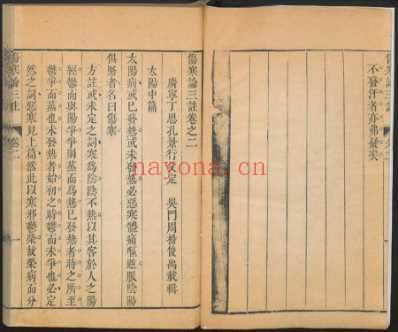 不發汗者亦弗發矣
傷寒論三註卷之二
廣寧丁思孔景行定 吳門周揚俊禹載輯
太陽中篇
太陽病或已發熱或未發熱必惡寒體痛嘔逆脈陰陽
俱緊者名曰傷寒
方註或未定之詞寒為陰陰不熱以其客於人之陽
經鬱而與陽爭爭則蒸而為熱已發熱者時之所至
鬱爭而蒸也未發熱者始初之時鬱而未爭也必定
然之詞惡寒見上篇然此以寒邪鬱榮故榮病而分
傷寒論三註 卷二 一
nayona.cn